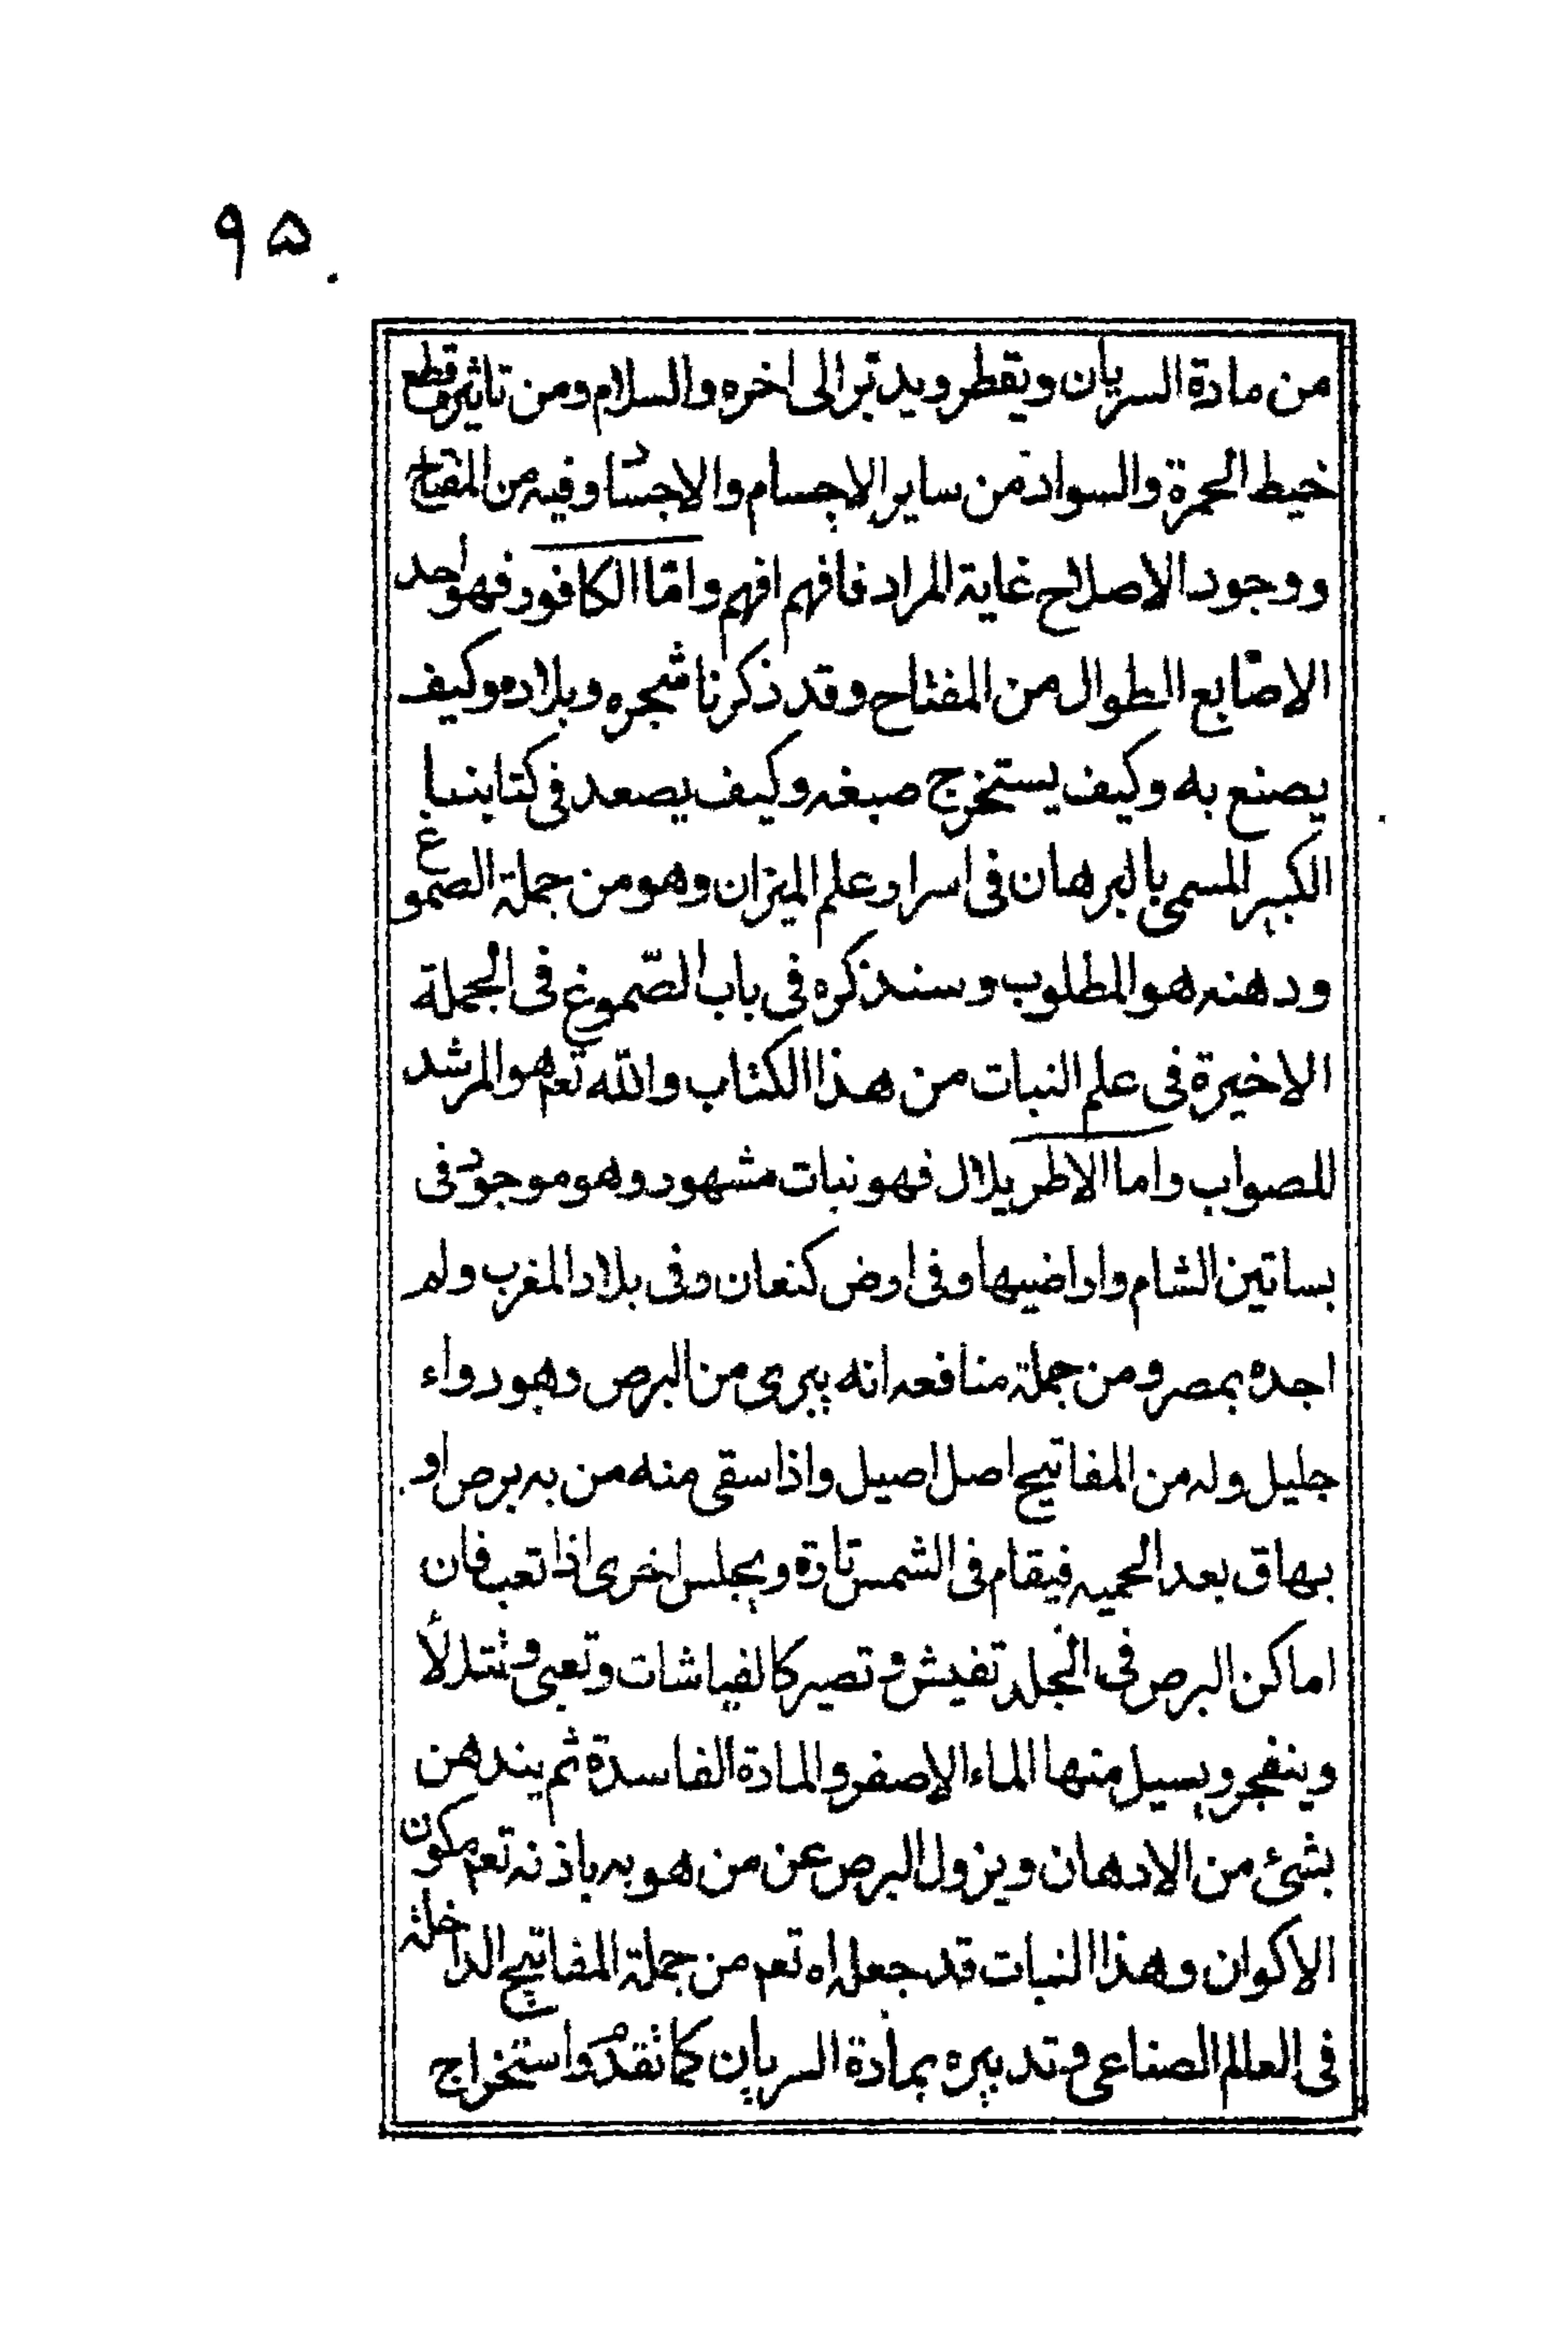 ۹۵
من مادة السريان ويقطر ويدبّر الى اخره والسلام ومن تاثيره قطع
خيط الحمرة والسواد من ساير الاجسام والاجساد وفيه من المفتاح
ووجود الاصلاح غاية المراد فافهم افهم وامّا الكافور فهو احد
الاصابع الطوال من المفتاح وقد ذكرنا شجره وبلاده وكيف
يصنع به وكيف يستخرج صبغه وكيف يصعد فى كتابنا
الكبير المسمى بالبرهان فى اسرار علم الميزان وهو من جملة الصموغ
ودهنه هو المطلوب وسنذكره فى باب الصّموغ فى الجملة
الاخيرة فى علم النبات من هذا الكتاب والله تعم هو المرشد
للصواب واما الاطريلال فهو نبات مشهور وهو موجود فى
بساتين الشام واراضيها وفى ارض كنعان وفى بلاد المغرب ولم
اجده بمصر ومن جملة منافعه انه يبرى من البرص وهو دواء
جليل وله من المفاتيح اصل اصيل واذا سقى منه من به برص او
بهاق بعد الحميه فيقام فى الشمس تارة ويجلس اخرى اذا تعب فان
اماكن البرص فى الجلد تفيش وتصير كالفياشات وتعبى وتتدلأ
وينفجر ويسيل منها الماء الاصفر والمادة الفاسدة ثم يندهن
بشئ من الادهان ويزول البرص عن من هو به باذنه تعم مكون
الاكوان وهذا النبات قد جعله اه تعم من جملة المفاتيح الداخلة
فى العالم الصناعى وتدبيره بمادة السريان كما تقدم واستخراج